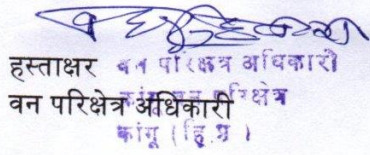 हस्ताक्षर वन परिक्षेत्र अधिकारी
वन परिक्षेत्र अधिकारी वन परिक्षेत्र
कांगू (हि.प्र.)